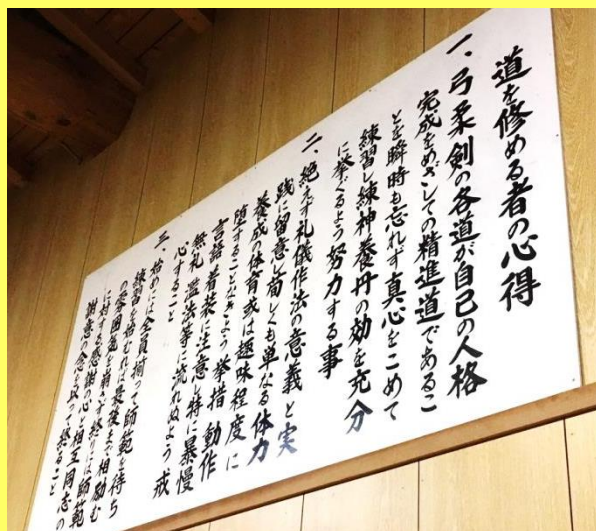 道を修める者の心得
一、弓柔剣の各道が自己の人格
完成をめざしての精進道であるこ
とを瞬時も忘れず真心をこめて
練習し練神養丹の効を充分
に挙ぐるよう努力する事
二、絶えず礼儀作法の意義と実
践に留意し苟しくも単なる体力
養成の体育或は趣味程度に
堕することなきよう挙措動作
言語着装に注意し特に暴慢
無礼濫法等に流れぬよう戒
心すること
三、始めには全員揃って師範を待ち
練習を始むれば最後まで相励む
の雰囲気を崩さず終には師範
に対する感謝の心と相互同志の
謝意の念を以って終ること